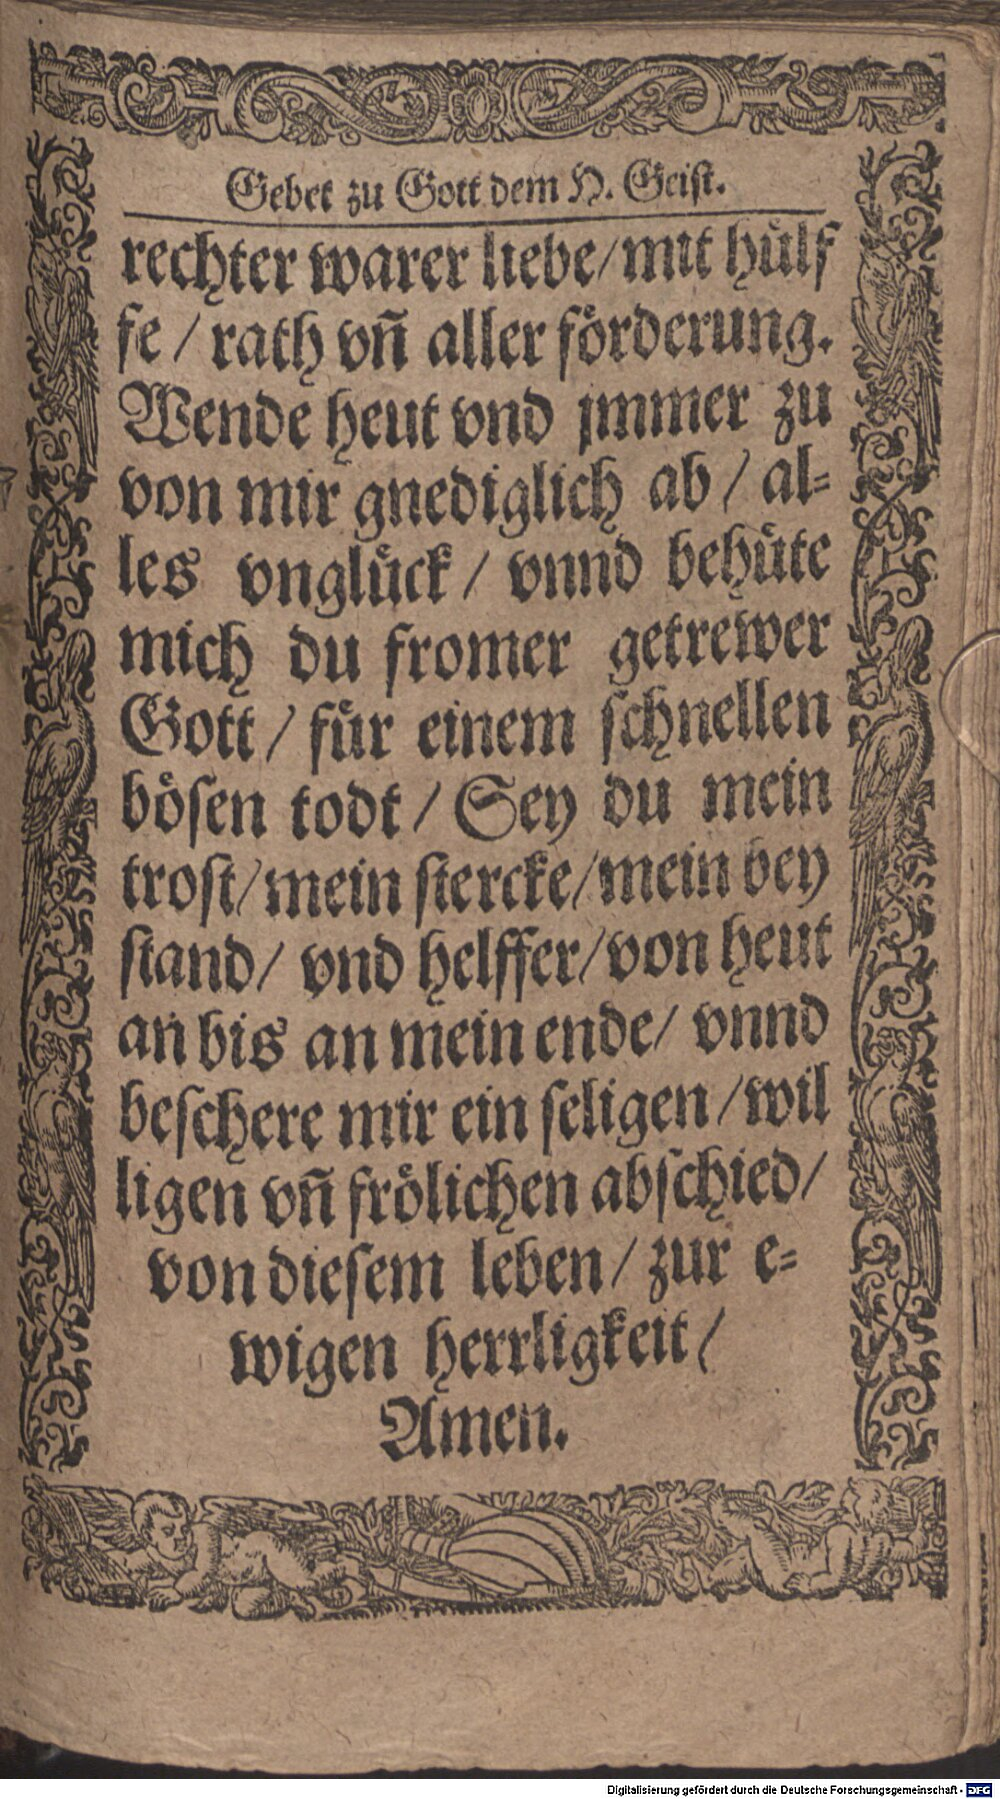 Gebet zu Gott dem H. Geist.
rechter warer liebe/mit hůlf
fe / rath vñ aller förderung.
Wende heut vnd jmmer zu
von mir gnediglich ab / al=
les vnglůck / vnnd behůte
mich du fromer getrewer
Gott / fůr einem schnellen
bösen todt / Sey du mein
trost/mein stercke/mein bey
stand/ vnd helffer/von heut
an bis an mein ende/ vnnd
beschere mir ein seligen /wil
ligen vñ frölichen abschied/
von diesem leben / zur e=
wigen herrligkeit /
Amen.
Digitalisierung gefördert durch die Deutsche Forschungsgemeinschaft - DFG